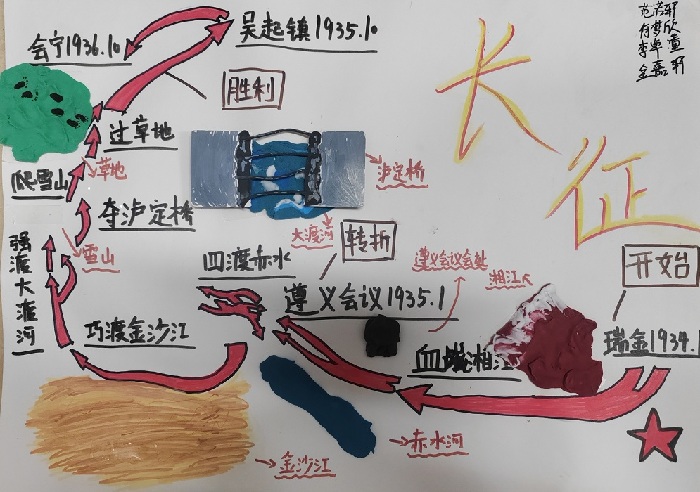 吴起镇1935.10
会宁1936.10
胜利
长征
过草地
草地
爬雪山
泸定桥
夺泸定桥
大渡河
转折
强渡大渡河
雪山
四渡赤水
遵义会议会处
湘江
开始
遵义会议1935.1
巧渡金沙江
血战湘江
瑞金1934.1
赤水河
金沙江